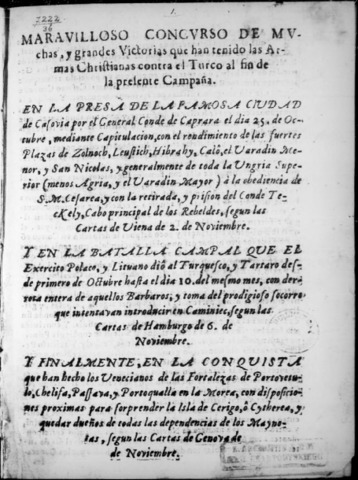 7222
36
MARAVILLOSO CONCVRSO DE MV-
chas, y grandes Victorias que han tenido las Ar-
mas Christianas contra el Turco al fin de
la presente Campaña.
EN LA PRESA DE LA FAMOSA CIUDAD
de Casovia por el General Conde de Caprara el dia 25. de Oc-
tubre, mediante Capitulacion, con el rendimiento de las fuertes
Plazas de Zolnoch, Leustich, Hibrahy, Calò, el Varadin Me-
nor, y San Nicolas, y generalmente de toda la Ungria Supe-
rior (menos Agria, y el Varadin Mayor) à la obediencia de
S. M. Cesarea, y con la retirada, y prision del Conde Te-
ckely, Cabo principal de los Rebeldes, segun las
Cartas de Viena de 2. de Noviembre.
Y EN LA BATALLA CAMPAL QUE EL
Exercito Polaco, y Lituano diò al Turquesco, y Tartaro des-
de primero de Octubre hasta el dia 10. del mesmo mes, con der-
rota entera de aquellos Barbaros, y toma del prodigioso socorro
que intentavan introducir en Caminiec, segun las
Cartas de Hamburgo de 6. de
Noviembre.
Y FINALMENTE, EN LA CONQUISTA
que han hecho los Venecianos de las Fortalezas de Portovetu-
lo, Chelisa, Passava, y Portoqualla en la Morea, con disposicio-
nes proximas para sorprender la Isla de Cerigo, ô Cytherea, y
quedar dueños de todas las dependencias de los Mayno-
tas, segun las Cartas de Genova de
de Noviembre.